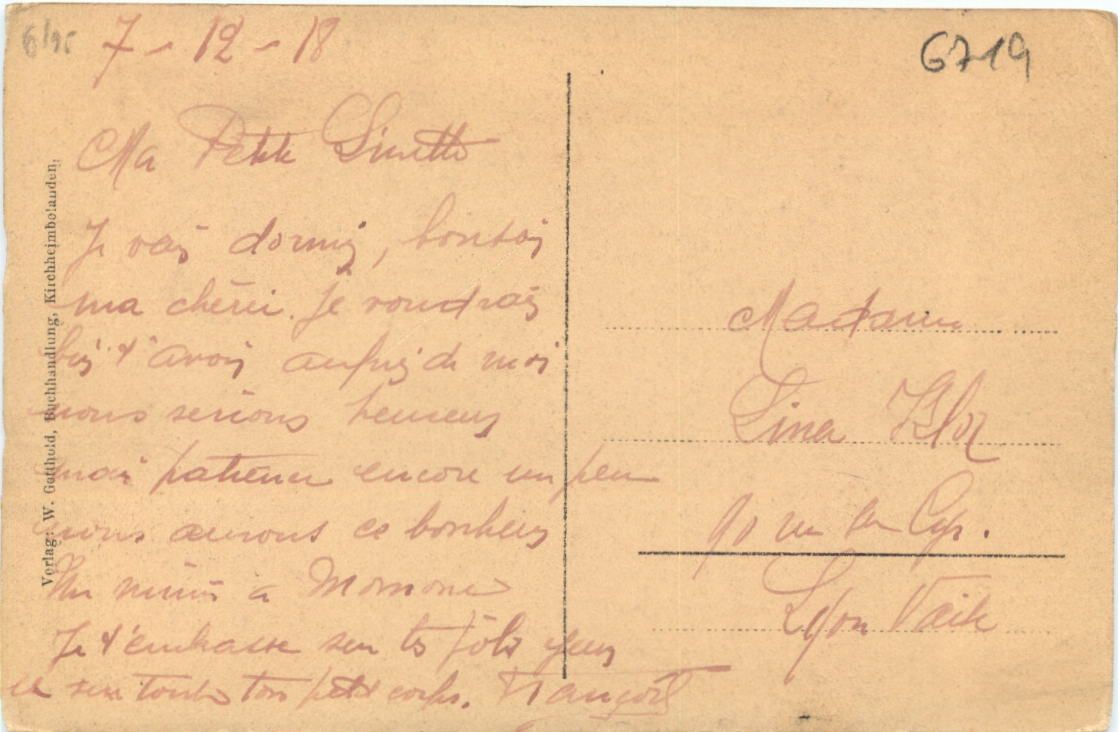 7 - 12 - 18
6719
Ma Petite Linette
Je vais dormir, bonsoir
ma chérie. Je voudrais
bien t'avoir auprès de moi
nous serions heureux
mais patience encore un peu
nous aurons ce bonheur
à Momone
Je t'embrasse sur tes jolis yeux
et sur tout ton petit corps. François
Madame
Lina
90 rue du
Lyon Vaise
Verlag: W. Gotthold, Buchhandlung, Kirchheimbolanden.